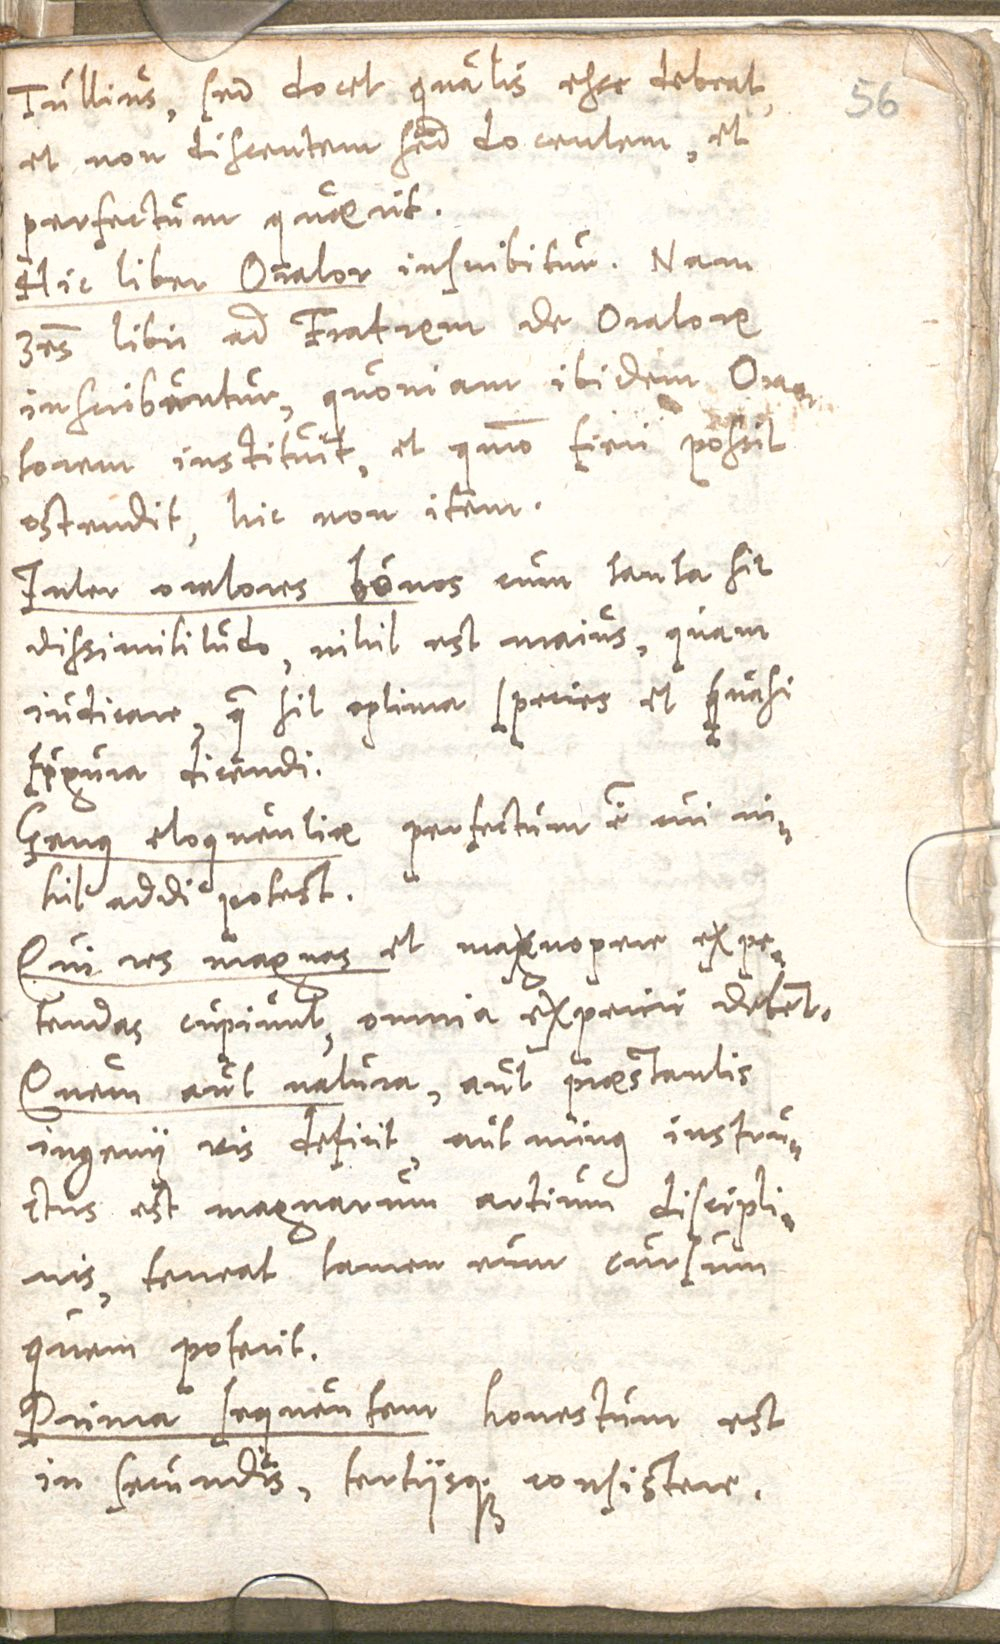 Tullius, sed docet qualis esse debeat,
56
et non discentem sed docentem, et
perfectum quærit.
Hic liber Orator inscribitur. Nam
3es libri ad Fratrem de Oratore
inscribuntur, quoniam ibidem Ora-
torem instituit, et quõ fieri possit
ostendit, hic non item.
Inter oratores bonos cum tanta sit
dissimilitudo, nihil est maius, quam
iudicare, q̃ sit optima species et quasi
figura dicendi.
Genus eloquentiæ perfectum ẽ cui ni„
hil addi potest.
Qui res magnas et magnopere expe„
tendas cupiunt, omnia experiri debẽt.
Quem aut natura, aut præstantis
ingenij vis deficit, aut minus instru„
ctus est magnarum artium discipli„
nis, teneat tamen eum cursum
quem poterit.
Prima sequentem honestum est
in secundis, tertijsq; consistere.